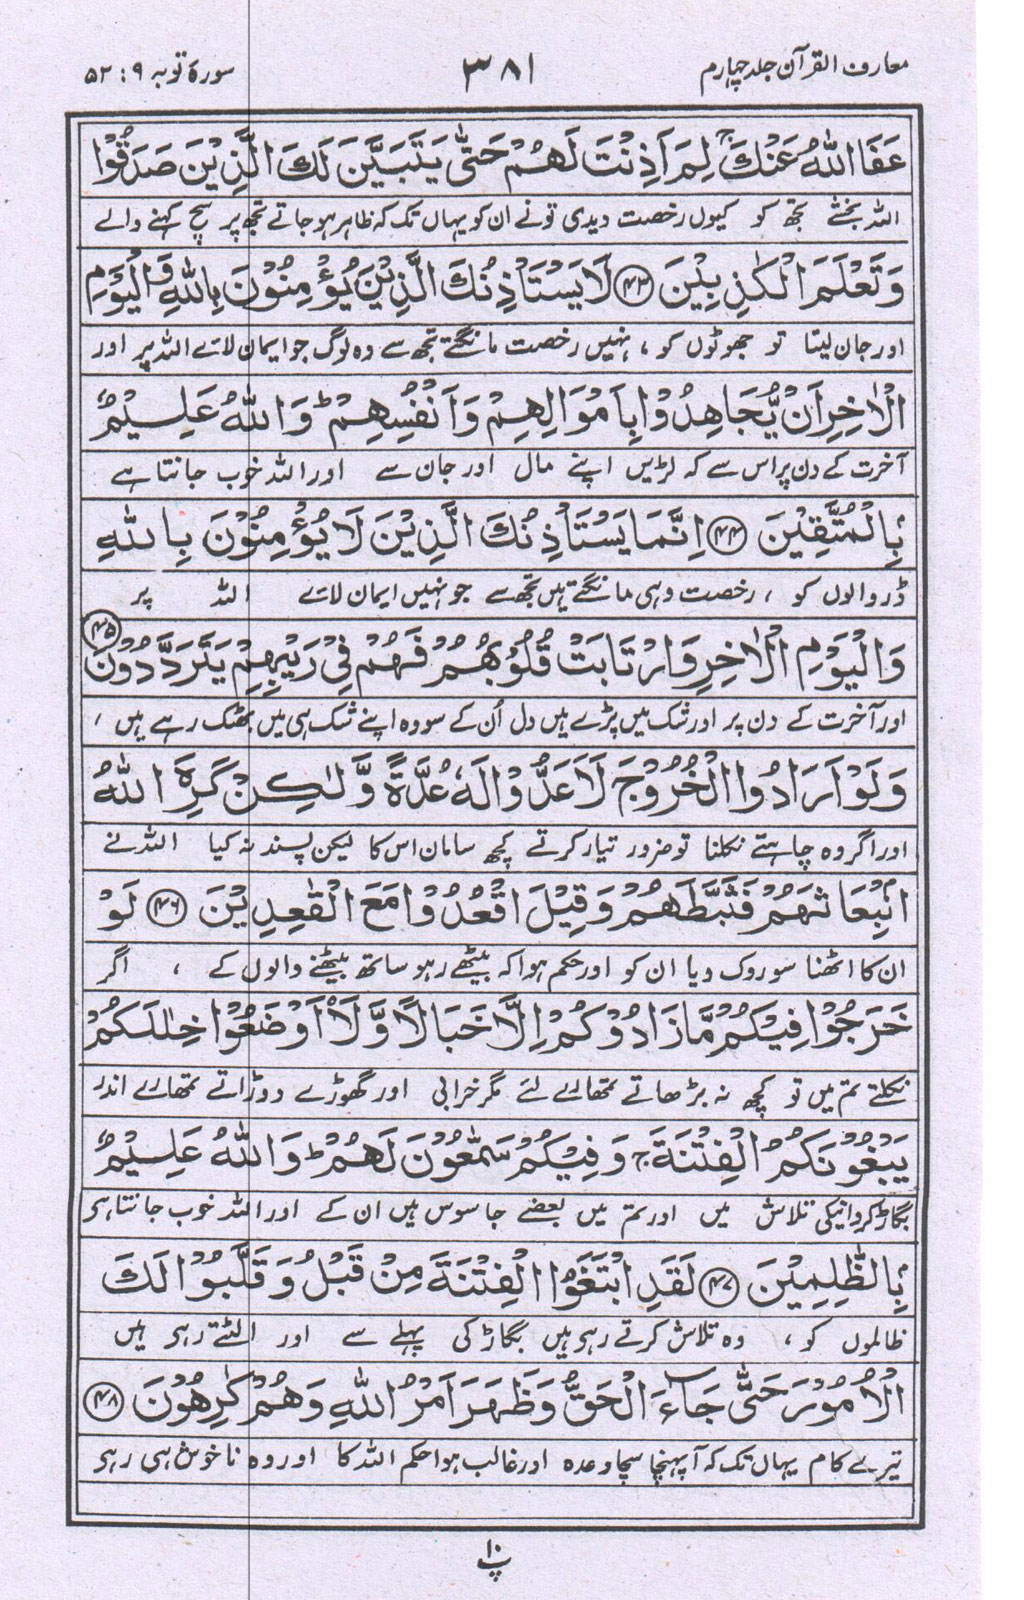 معارف القرآن جلد چہارم
۳۸۱
سورۃ توبہ ۹ : ۵۲
عَفَا اللّٰهُ عَنْكَ ۚ لِمَ اَذِنْتَ لَهُمْ حَتّٰى يَتَبَيَّنَ لَكَ الَّذِيْنَ صَدَقُوْا
اللہ بخشے تجھ کو کیوں رخصت دیدی تو نے ان کو یہاں تک کہ ظاہر ہو جاتے تجھ پر سچ کہنے والے
وَتَعْلَمَ الْكٰذِبِيْنَ ﴿۴۳﴾ لَا يَسْتَاْذِنُكَ الَّذِيْنَ يُؤْمِنُوْنَ بِاللّٰهِ وَالْيَوْمِ
اور جان لیتا تو جھوٹوں کو ، نہیں رخصت مانگتے تجھ سے وہ لوگ جو ایمان لائے اللہ پر اور
الْاٰخِرِ اَنْ يُّجَاهِدُوْا بِاَمْوَالِهِمْ وَاَنْفُسِهِمْ ؕ وَاللّٰهُ عَلِيْمٌۢ
آخرت کے دن پر اس سے کہ لڑیں اپنے مال اور جان سے اور اللہ خوب جانتا ہے
بِالْمُتَّقِيْنَ ﴿۴۴﴾ اِنَّمَا يَسْتَاْذِنُكَ الَّذِيْنَ لَا يُؤْمِنُوْنَ بِاللّٰهِ
ڈر والوں کو ، رخصت وہی مانگتے ہیں تجھ سے جو نہیں ایمان لائے اللہ پر
وَالْيَوْمِ الْاٰخِرِ وَارْتَابَتْ قُلُوْبُهُمْ فَهُمْ فِيْ رَيْبِهِمْ يَتَرَدَّدُوْنَ ﴿۴۵﴾
اور آخرت کے دن پر اور شک میں پڑے ہیں دل اُن کے سو وہ اپنے شک ہی میں بھٹک رہے ہیں ،
وَلَوْ اَرَادُوا الْخُرُوْجَ لَاَعَدُّوْا لَهٗ عُدَّةً وَّلٰكِنْ كَرِهَ اللّٰهُ
اور اگر وہ چاہتے نکلنا تو ضرور تیار کرتے کچھ سامان اس کا لیکن پسند نہ کیا اللہ نے
انْۢبِعَاثَهُمْ فَثَبَّطَهُمْ وَقِيْلَ اقْعُدُوْا مَعَ الْقٰعِدِيْنَ ﴿۴۶﴾ لَوْ
ان کا اٹھنا سو روک دیا ان کو اور حکم ہوا کہ بیٹھے رہو ساتھ بیٹھنے والوں کے ، اگر
خَرَجُوْا فِيْكُمْ مَّا زَادُوْكُمْ اِلَّا خَبَالًا وَّلَا۟اَوْضَعُوْا خِلٰلَكُمْ
نکلتے تم میں تو کچھ نہ بڑھاتے تمھارے لئے مگر خرابی اور گھوڑے دوڑاتے تمھارے اندر
يَبْغُوْنَكُمُ الْفِتْنَةَ ۚ وَفِيْكُمْ سَمّٰعُوْنَ لَهُمْ ؕ وَاللّٰهُ عَلِيْمٌۢ
بگاڑ کروانیکی تلاش میں اور تم میں بعضے جاسوس ہیں ان کے اور اللہ خوب جانتا ہی
بِالظّٰلِمِيْنَ ﴿۴۷﴾ لَقَدِ ابْتَغَوُا الْفِتْنَةَ مِنْ قَبْلُ وَقَلَّبُوْا لَكَ
ظالموں کو ، وہ تلاش کرتے رہی ہیں بگاڑ کی پہلے سے اور الٹتے رہی ہیں
الْاُمُوْرَ حَتّٰى جَآءَ الْحَقُّ وَظَهَرَ اَمْرُ اللّٰهِ وَهُمْ كٰرِهُوْنَ ﴿۴۸﴾
تیرے کام یہاں تک کہ آ پہنچا سچا وعدہ اور غالب ہوا حکم اللہ کا اور وہ ناخوش ہی رہی